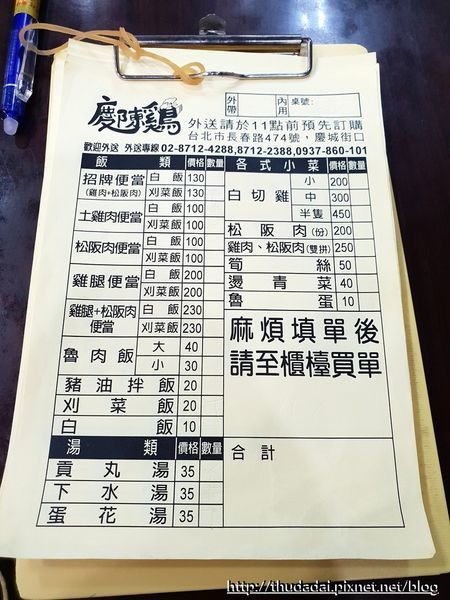 慶陳鷄
外帶
內用
桌號:
外送請於11點前預先訂購
台北市長春路474號,慶城街口
歡迎外送 外送專線 02-8712-4288,8712-2388,0937-860-101
飯類 價格 數量
招牌便當(雞肉+松阪肉) 白飯 130
刈菜飯 130
土雞肉便當 白飯 100
刈菜飯 100
松阪肉便當 白飯 100
刈菜飯 100
雞腿便當 白飯 200
刈菜飯 200
雞腿+松阪肉便當 白飯 230
刈菜飯 230
魯肉飯 大 40
小 30
豬油拌飯 20
刈菜飯 20
白飯 10
湯類 價格 數量
貢丸湯 35
下水湯 35
蛋花湯 35
各式小菜 價格 數量
白切雞 小 200
中 300
半隻 450
松阪肉(份) 200
雞肉、松阪肉(雙拼) 250
筍絲 50
燙青菜 40
魯蛋 10
麻煩填單後
請至櫃檯買單
合計
http://thudadai.pixnet.net/blog